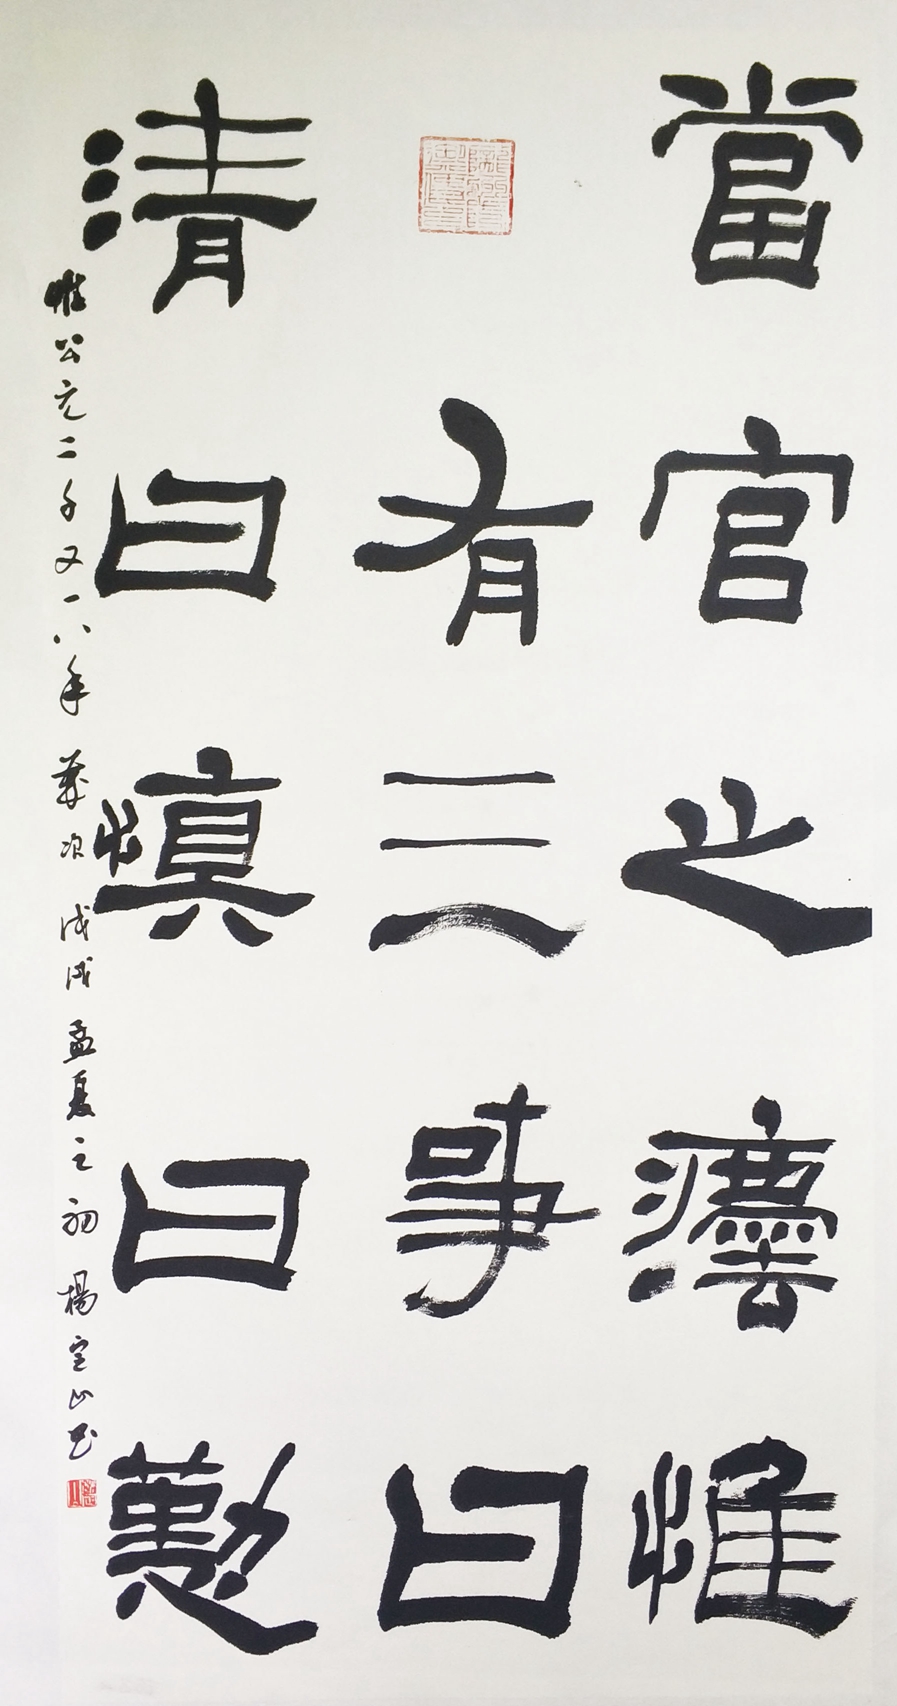 當官之灋惟
有三事曰
清曰慎曰懃
惟公元二千又一八年歲次戊戌孟夏之初楊山书